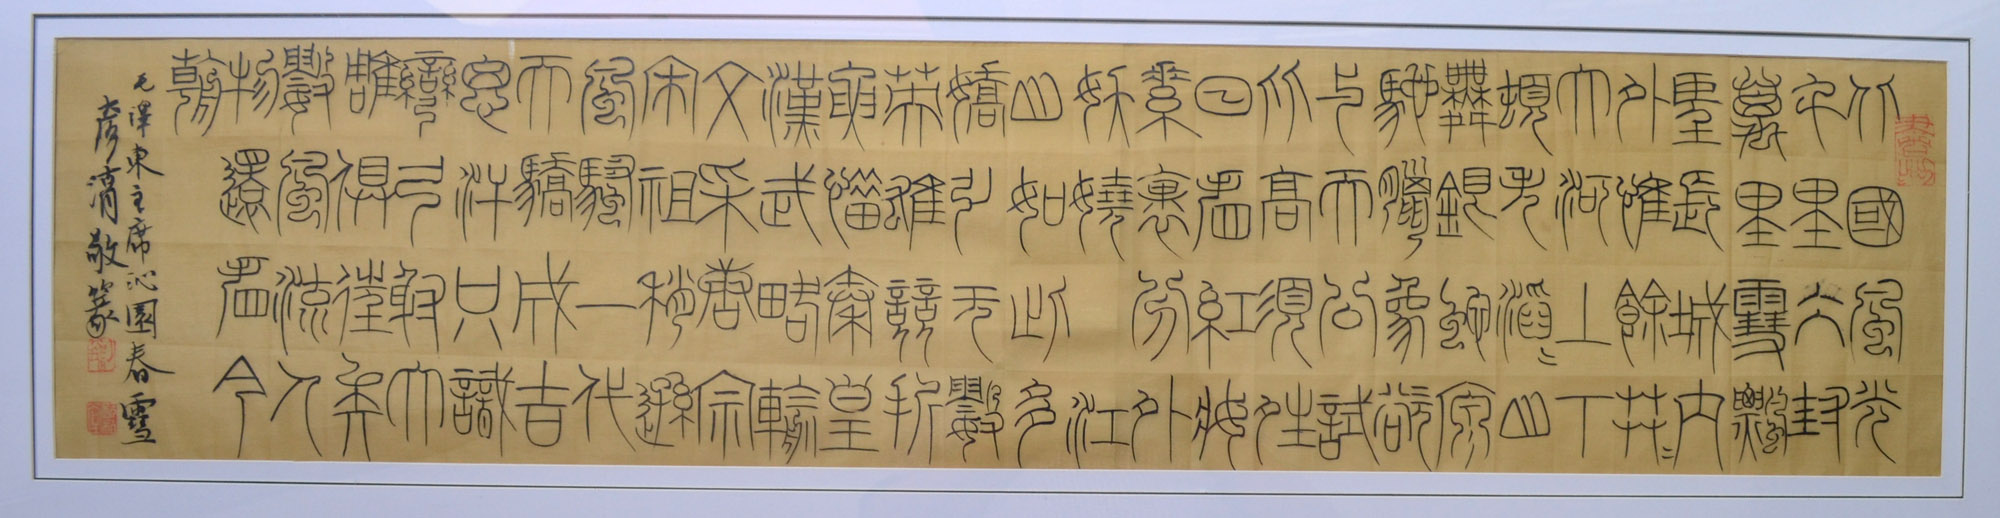 北國風光
千里冰封
萬里雪飄
望長城内
外惟餘莽〻
大河上下
頓失滔〻山
舞銀蛇原
馳臘象欲
与天公試
比高須晴
日看紅妝
素裹分外
妖嬈江
山如此多
嬌引无數
英雄競折
腰惜秦皇
漢武略輸
文采唐宗
宋祖稍遜
風騷一代
天驕成吉
思汗只識
彎弓射大
雕俱往矣
數風流人
物還看今
朝
毛澤東主席沁園春雪
敬篆